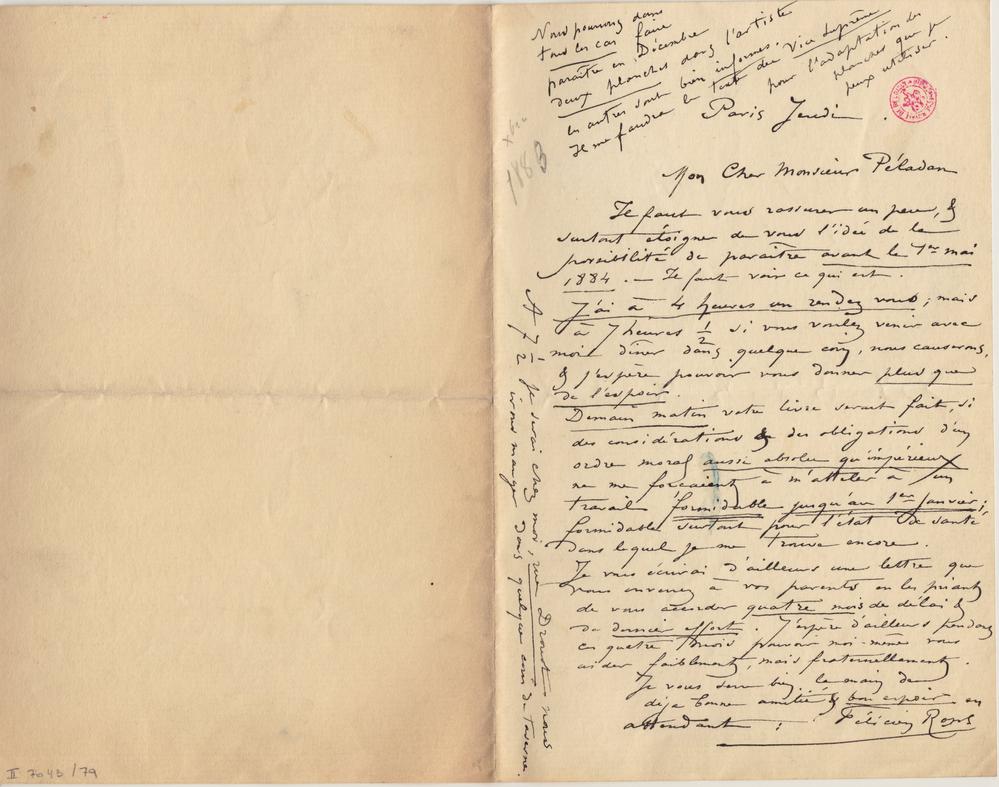 Nous pouvons dans
tous les cas faire
paraître en Décembre
deux planches dont l'artiste
les autres sont bien informes.
Il me faudra le texte du Vice Suprême
pour l'adaptation des
planches que je
peux utiliser.
Paris Jeudi.
1883
Mon Cher Monsieur Péladan
Il faut vous rassurer un peu, &
surtout éloigner de vous l'idée de la
possibilité de paraître avant le 1er mai
1884. — Il faut voir ce qui est.
J'ai à 4 heures un rendez vous ; mais
à 7 heures 1/2 si vous voulez venir avec
moi dîner dans quelque coin, nous causerons,
& j'espère pouvoir vous donner plus que
de l'espoir.
Demain matin votre livre serait fait, si
des considérations & des obligations d'un
ordre moral aussi absolu qu'impérieux
ne me forçaient à m'atteler à un
travail formidable jusqu'au 1er Janvier ;
formidable surtout pour l'état de santé
dans lequel je me trouve encore.
Je vous écrirai d'ailleurs une lettre que
vous enverrez à vos parents en les priant
de vous accorder quatre mois de délai &
de dernier effort. J'espère d'ailleurs pendant
ces quatre mois pouvoir moi-même vous
aider faiblement, mais fraternellement.
Je vous serre bien la main de
déjà bonne amitié & bon espoir en
attendant :
Félicien Rops
A 7 1/2 je serai chez moi, rue Drouot & nous
irons manger dans quelque coin de Taverne.
II 7043/79